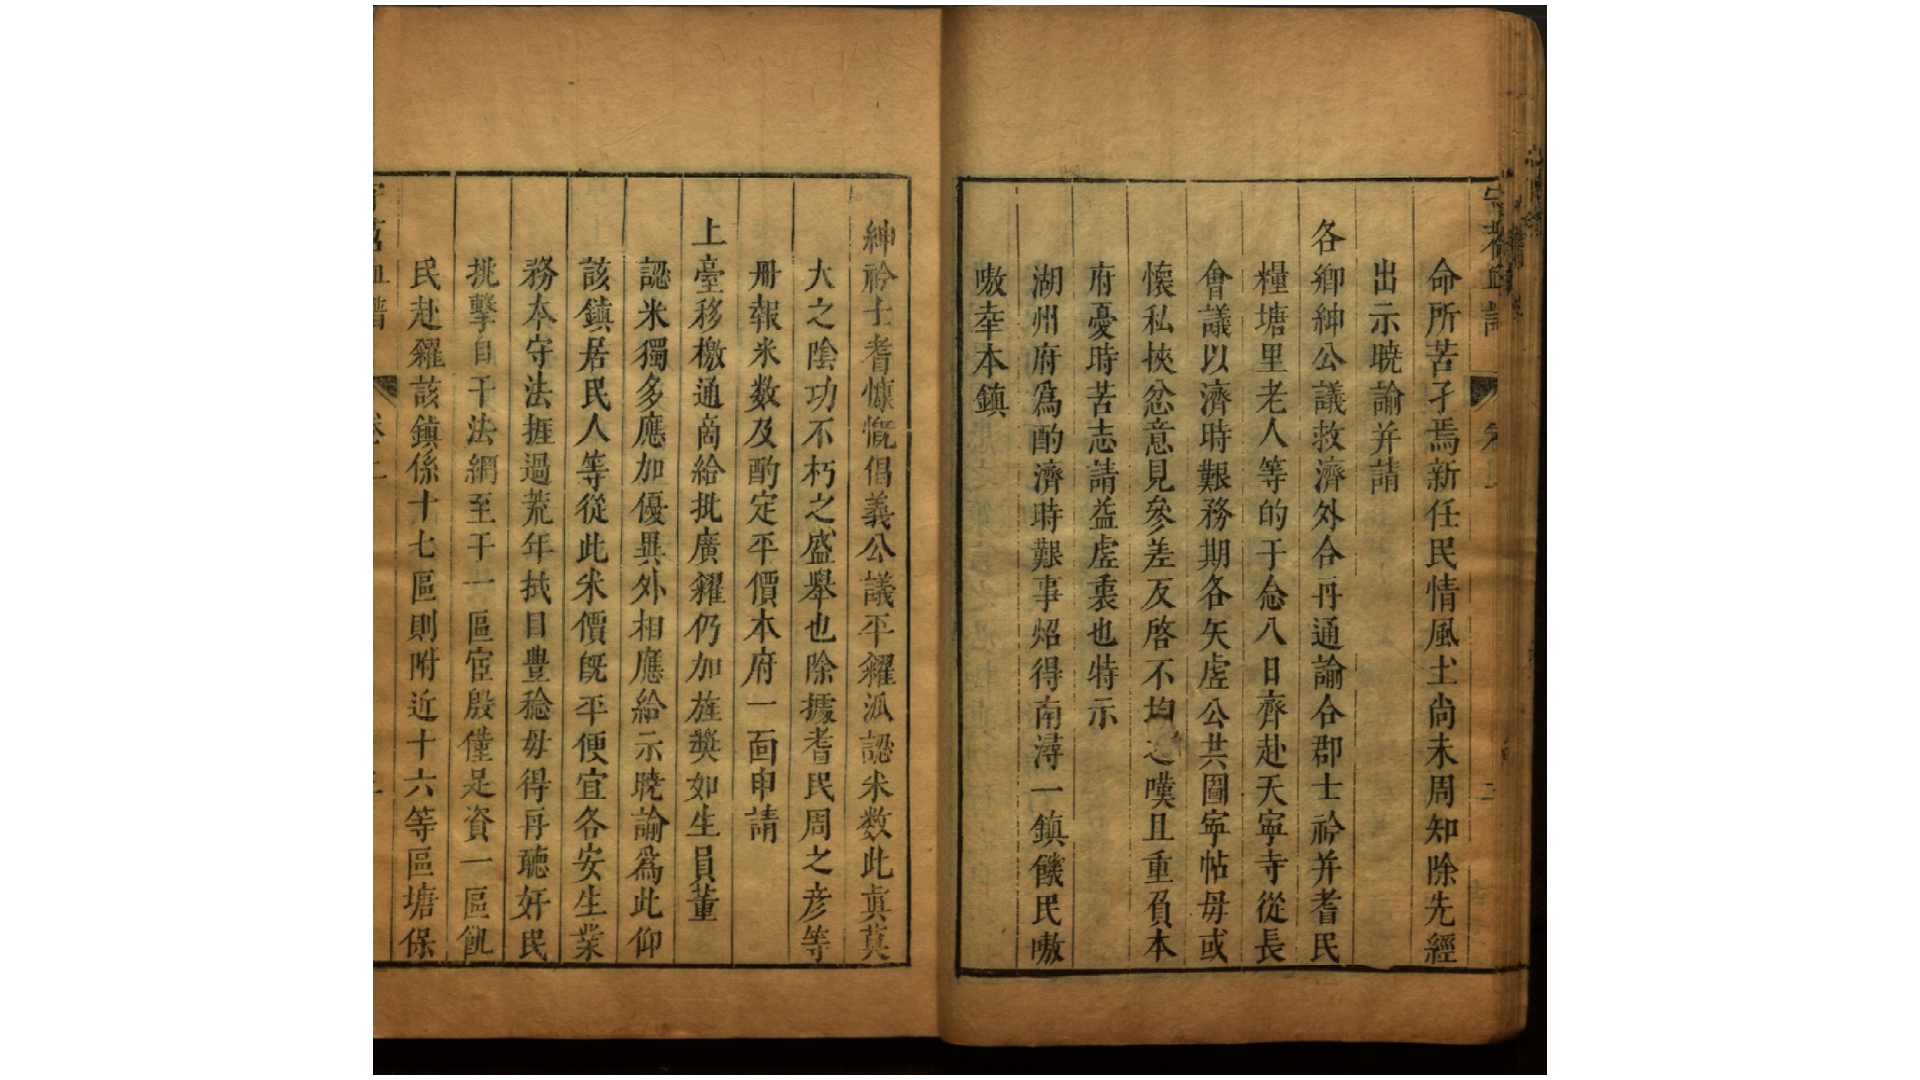 命所苦孑焉新任民情風土尚未周知除先經
出示曉諭并請
各鄉紳公議救濟外合再通諭合郡士衿并耆民
糧塘里老人等的于念八日齊赴天寧寺從長
會議以濟時艱務期各矢虗公共圖寧帖毋或
懷私挾忿意見參差反啓不均之嘆且重負本
府憂時苦志請益虗裏也特示
湖州府爲酌濟時艱事炤得南潯一鎮饑民嗷
嗷幸本鎮
紳衿士耆慷慨倡義公議平糴派認米数此真莫
大之陰功不朽之盛舉也除據耆民周之彦等
册報米数及酌定平價本府一面申請
上臺移檄通商給批廣糴仍加旌奬如生員董
認米獨多應加優異外相應給示曉諭爲此仰
該鎮居民人等從此米價旣平便宜各安生業
務本守法捱過荒年拭目豊稔毋得再聽奸民
挑擊自干法網至于一區宦殷僅足資一區飢
民赴糴該鎮係十七區則附近十六等區塘保